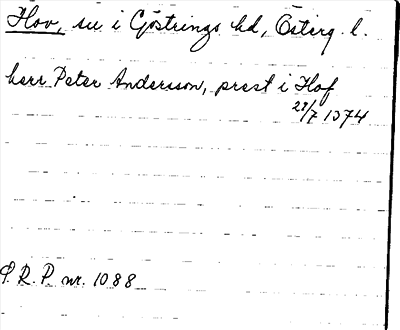 Hov, sn i Göstrings hd, Österg. l.
herr Peter Andersson, prest i Hof
28/7 1374
P. R. P. nr. 1088